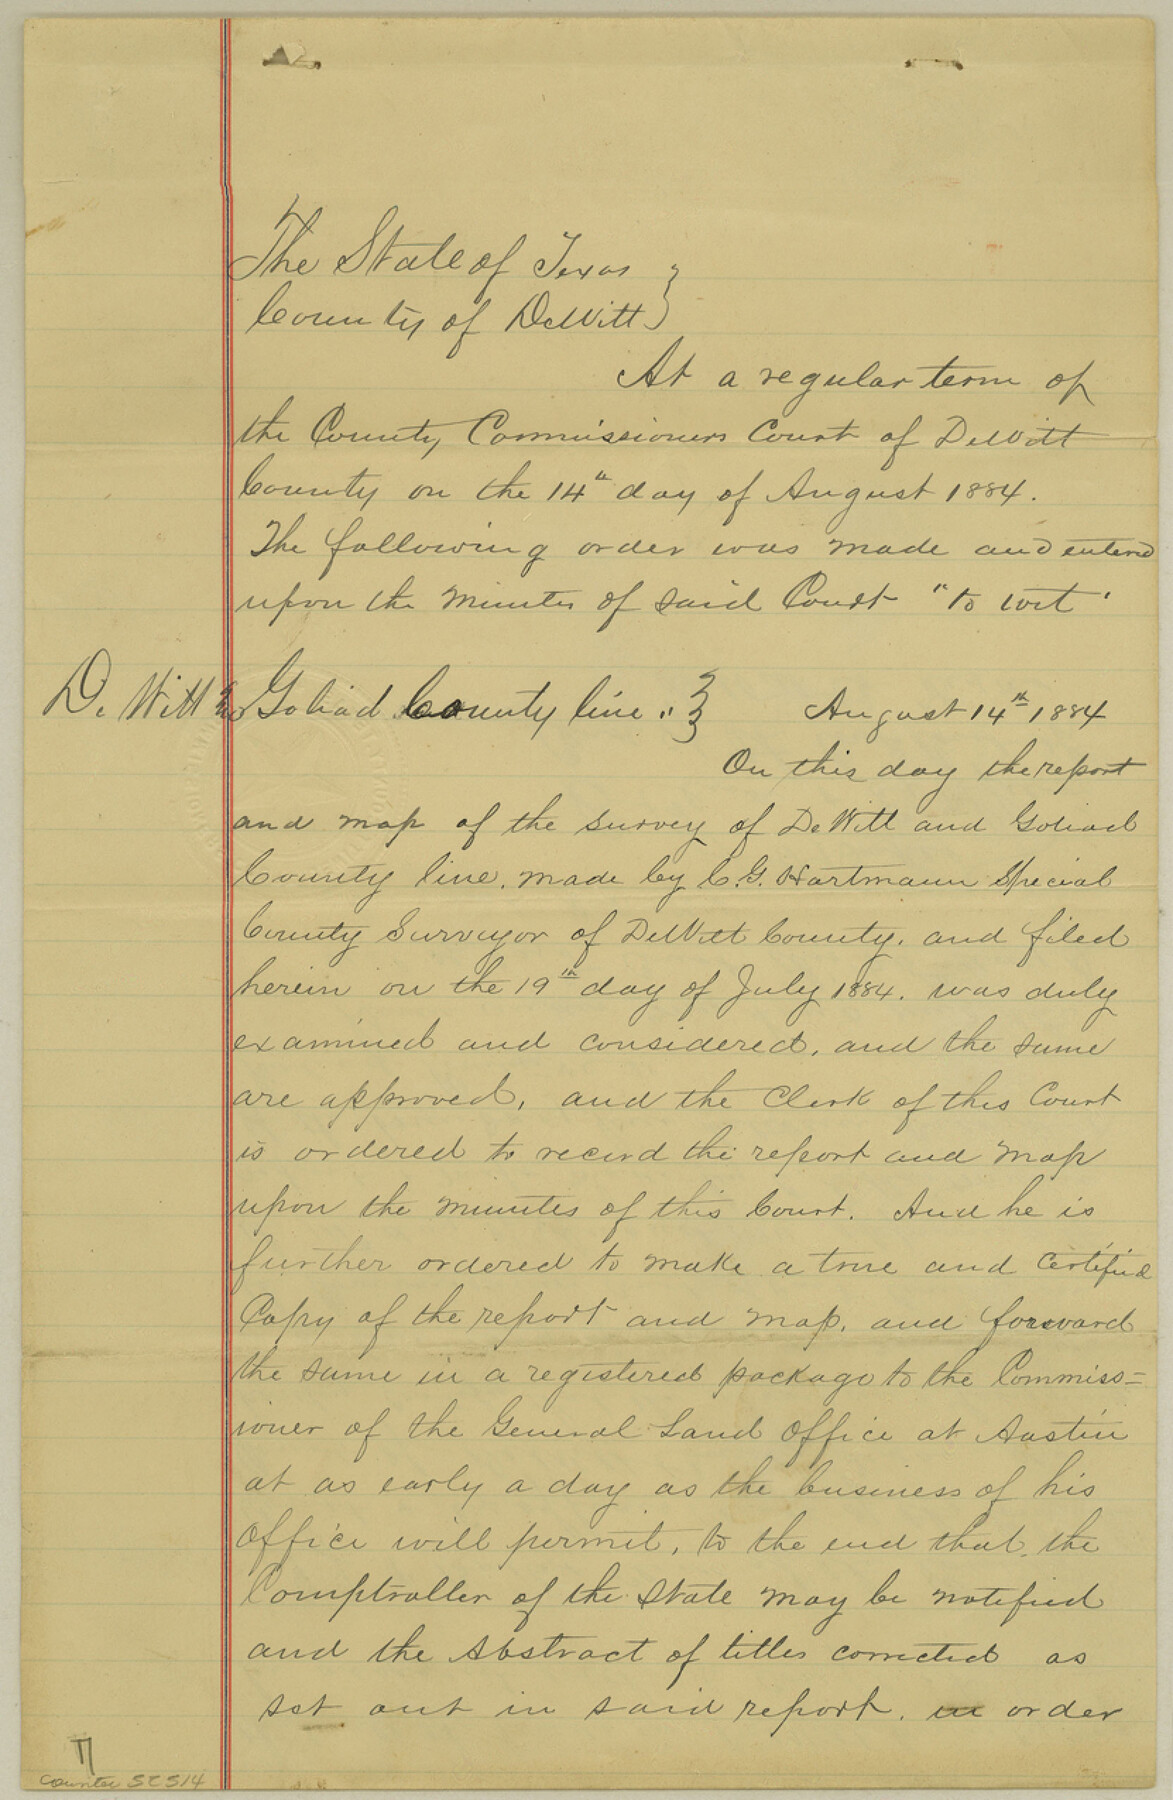 The State of Texas }
County of DeWitt }
At a regular term of
the County Commissioners Court of DeWitt
County on the 14th day of August 1884.
The following order was made and entered
upon the minutes of said Court "to wit'
DeWitt & Goliad County line " } August 14th 1884
On this day the report
and map of the survey of DeWitt and Goliad
County line. made by C. G. Hartmann Special
County Surveyor of DeWitt County, and filed
herein on the 19th day of July 1884. was duly
examined and considered, and the same
are approved, and the Clerk of this Court
is ordered to record the report and map
upon the minutes of this Court. And he is
further ordered to make a true and Certified
Copy of the report and map, and forward
the same in a registered package to the Commiss=
ioner of the General Land Office at Austin
at as early a day as the business of his
Office will permit, to the end that the
Comptroller of the State may be notified
and the Abstract of titles corrected as
set out in said report. in order
counter 52514